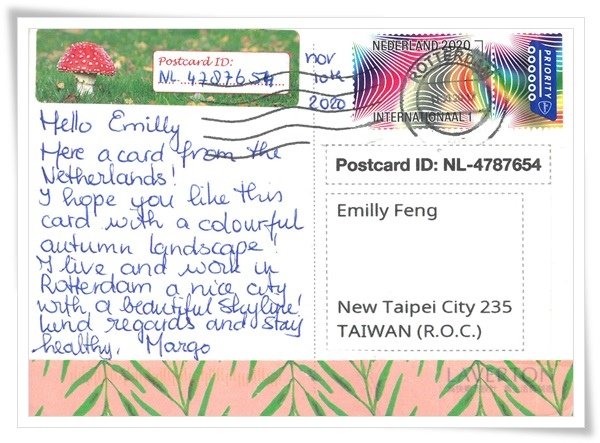 Postcard ID:
NL-4787654
nov
10th
2020
NEDERLAND 2020
INTERNATIONAAL 1
PRIORITY
ROTTERDAM
Hello Emilly
Here a card from the
Netherlands!
I hope you like this
card with a colourful
autumn landscape!
I live and work in
Rotterdam a nice city
with a beautiful skyline!
Kind regards and stay
healthy, Margo
Postcard ID: NL-4787654
Emilly Feng
New Taipei City 235
TAIWAN (R.O.C.)
LAVERTON